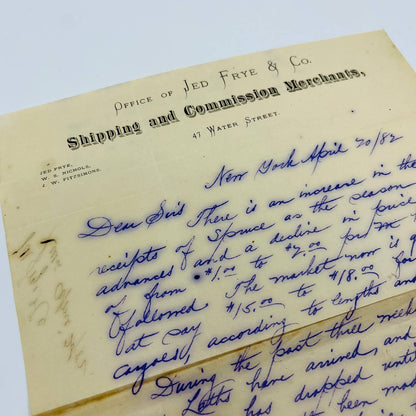 OFFICE OF JED FRYE & CO.
Shipping and Commission Merchants,
47 WATER STREET.
JED FRYE,
W. S. NICHOLS,
J. W. FITZSIMONS.
New York April 20/82
Dear Sirs There is an increase in the
receipts of Spruce as the season
advances and a decline in price
of from $1.00 to $2.00 pr M
followed The market now is
at say $15.00 to $18.00 for
cargoes, according to lengths and
During the past three weeks
Laths have arrived, and
has dropped until
been made